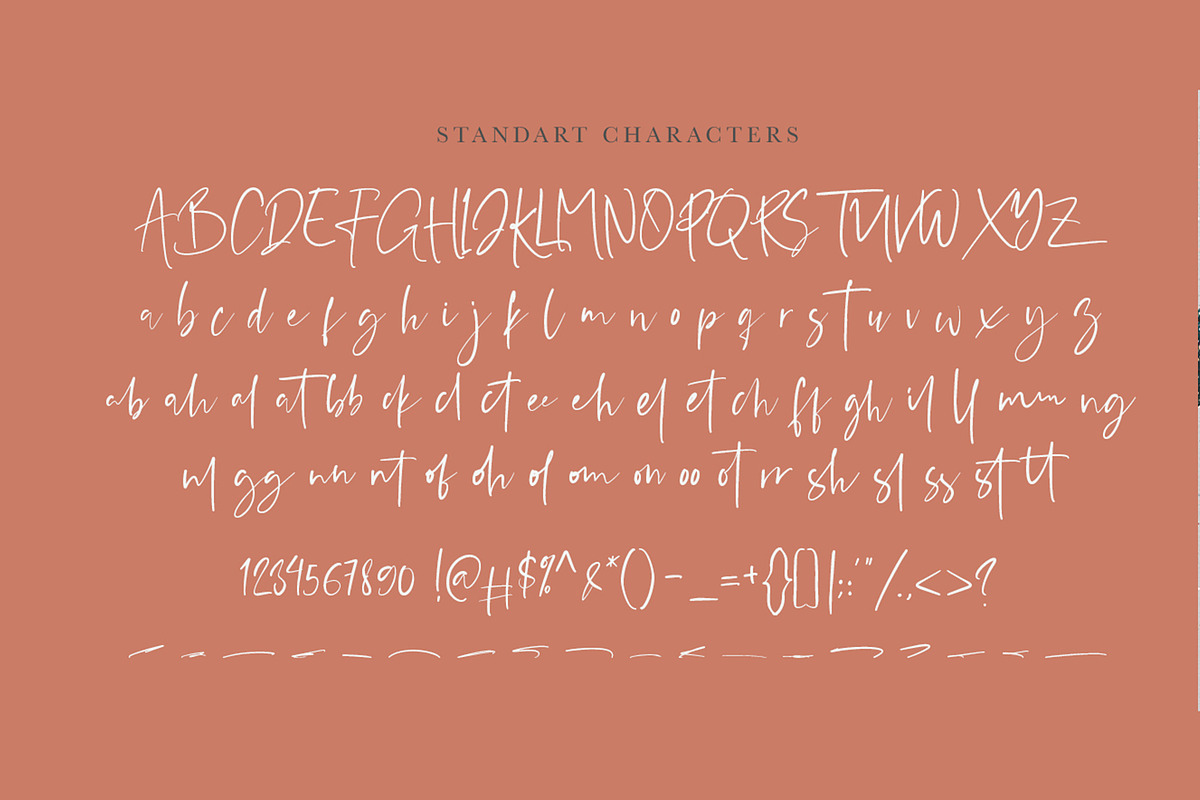 STANDART CHARACTERS
ABCDEFGHIJKLMNOPQRSTUVWXYZ
a b c d e f g h i j k l m n o p q r s t u v w x y z
ab ah al at bb ck cl ct ee eh el et ch ff gh il ll mm ng
nl gg nn nt of oh ol om on oo ot rr sh sl ss st tt
1234567890 !@#$%^&*()-_=+{}[]|;:'"/.,<>?